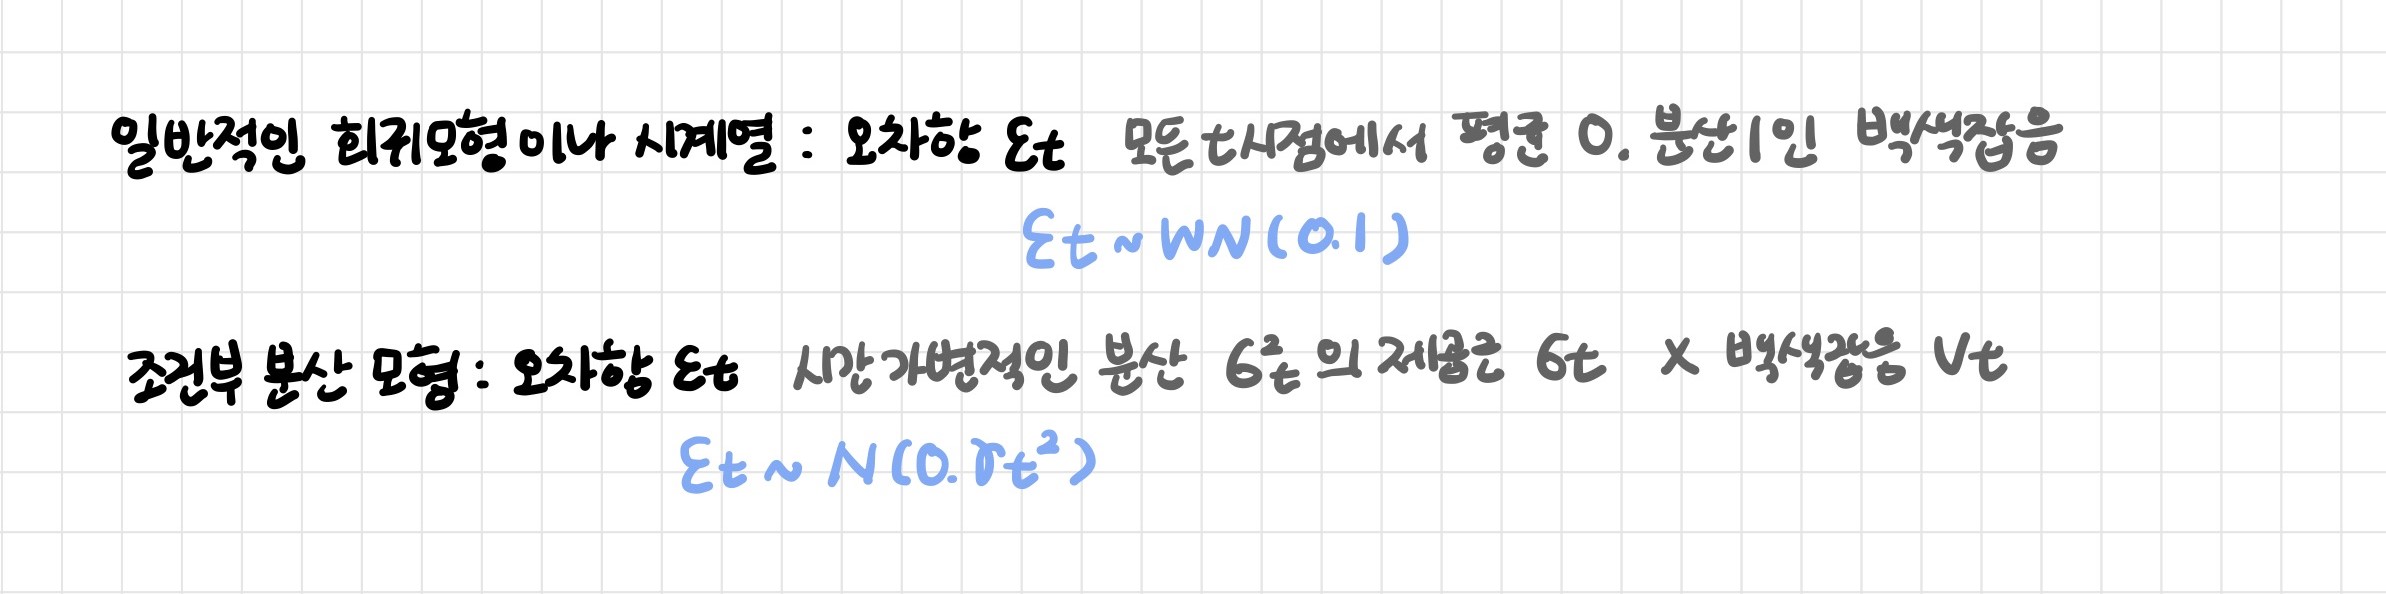 일반적인 회귀모형이나 시계열 : 오차항 εt 모든 t시점에서 평균 0. 분산 1인 백색잡음
εt ~ WN(0.1)
조건부 분산 모형 : 오차항 εt 시간 가변적인 분산 σ²t 의 제곱근 σt × 백색잡음 Vt
εt ~ N(0.σt²)